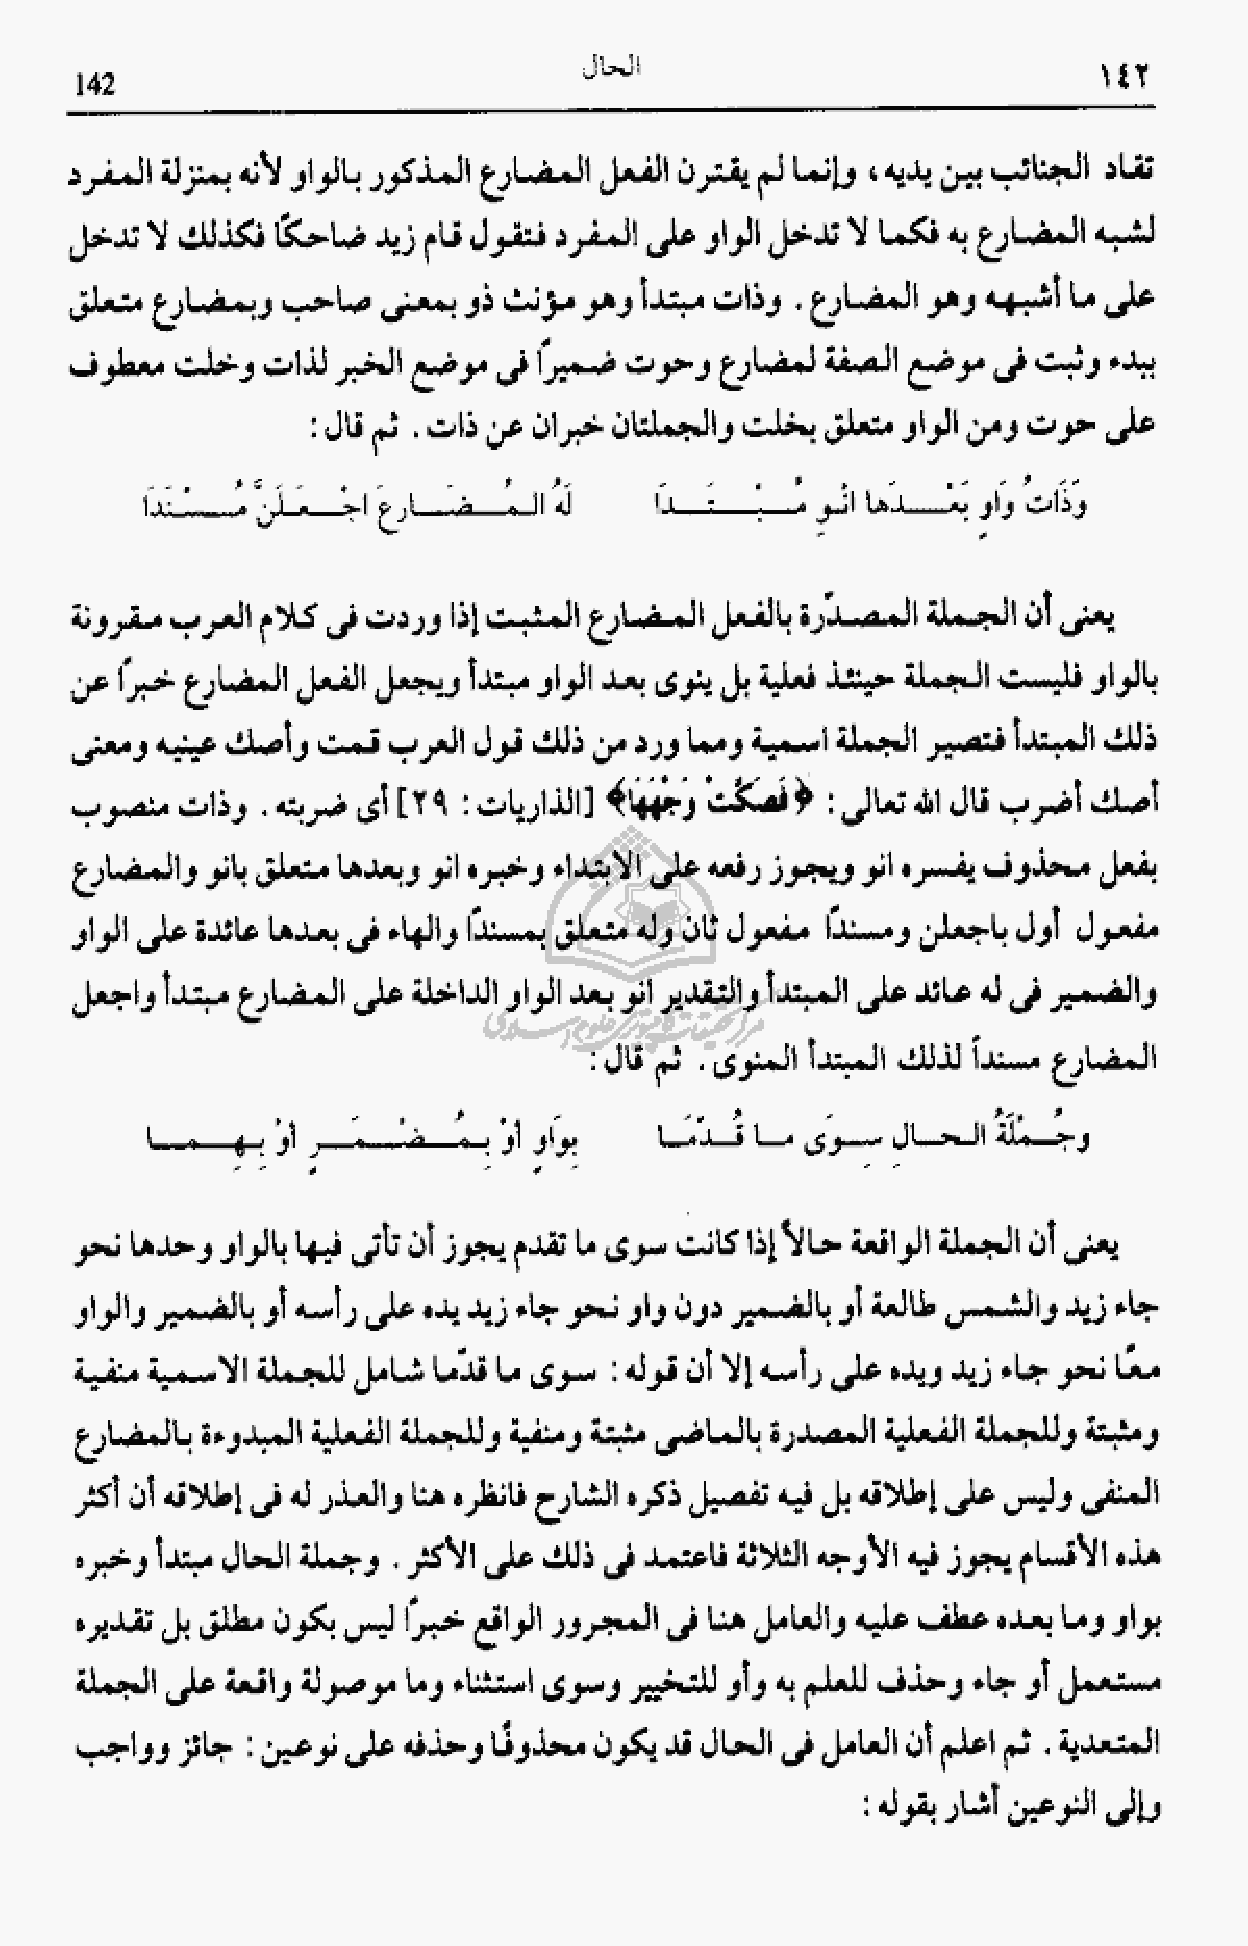 ١٤٢ الحال 142
تقاد الجنائب بين يديه ، وإنما لم يقترن الفعل المضارع المذكور بالواو لأنه بمنزلة المفرد
لشبه المضارع به فكما لا تدخل الواو على المفرد فتقول قام زيد ضاحكًا فكذلك لا تدخل
على ما أشبهه وهو المضارع . وذات مبتدأ وهو مؤنث ذو بمعنى صاحب وبمضارع متعلق
ببدء وثبت فى موضع الصفة لمضارع وحوت ضميرًا فى موضع الخبر لذات وخلت معطوف
على حوت ومن الواو متعلق بخلت والجملتان خبران عن ذات . ثم قال :
وَذَاتُ وَاوٍ بَعْدَهَا انْوِ مُبْتَدَا لَهُ الْمُضَارِعَ اجْعَلَنَّ مُسْنَدَا
يعنى أن الجملة المصدّرة بالفعل المضارع المثبت إذا وردت فى كلام العرب مقرونة
بالواو فليست الجملة حينئذ فعلية بل ينوى بعد الواو مبتدأ ويجعل الفعل المضارع خبرًا عن
ذلك المبتدأ فتصير الجملة اسمية ومما ورد من ذلك قول العرب قمت وأصك عينيه ومعنى
أصك أضرب قال الله تعالى : ﴿ فَصَكَّتْ وَجْهَهَا﴾ [الذاريات : ٢٩] أى ضربته . وذات منصوب
بفعل محذوف يفسره انو ويجوز رفعه على الابتداء وخبره انو وبعدها متعلق بانو والمضارع
مفعول أول باجعلن ومسندًا مفعول ثان وله متعلق بمسندًا والهاء فى بعدها عائدة على الواو
والضمير فى له عائد على المبتدأ والتقدير انو بعد الواو الداخلة على المضارع مبتدأ واجعل
المضارع مسندًا لذلك المبتدأ المنوى . ثم قال :
وجُمْلَةُ الحالِ سِوَى ما قُدِّمَا بِوَاوٍ أوْ بِمُضْمَرٍ أوْ بِهِما
يعنى أن الجملة الواقعة حالاً إذا كانت سوى ما تقدم يجوز أن تأتى فيها بالواو وحدها نحو
جاء زيد والشمس طالعة أو بالضمير دون واو نحو جاء زيد يده على رأسه أو بالضمير والواو
معًا نحو جاء زيد ويده على رأسه إلا أن قوله : سوى ما قدّما شامل للجملة الاسمية منفية
ومثبتة وللجملة الفعلية المصدرة بالماضى مثبتة ومنفية وللجملة الفعلية المبدوءة بالمضارع
المنفى وليس على إطلاقه بل فيه تفصيل ذكره الشارح فانظره هنا والعذر له فى إطلاقه أن أكثر
هذه الأقسام يجوز فيه الأوجه الثلاثة فاعتمد فى ذلك على الأكثر . وجملة الحال مبتدأ وخبره
بواو وما بعده عطف عليه والعامل هنا فى المجرور الواقع خبرًا ليس بكون مطلق بل تقديره
مستعمل أو جاء وحذف للعلم به وأو للتخيير وسوى استثناء وما موصولة واقعة على الجملة
المتعدية . ثم اعلم أن العامل فى الحال قد يكون محذوفًا وحذفه على نوعين : جائز وواجب
وإلى النوعين أشار بقوله :
مركز تحقيقات كامپيوترى علوم اسلامى